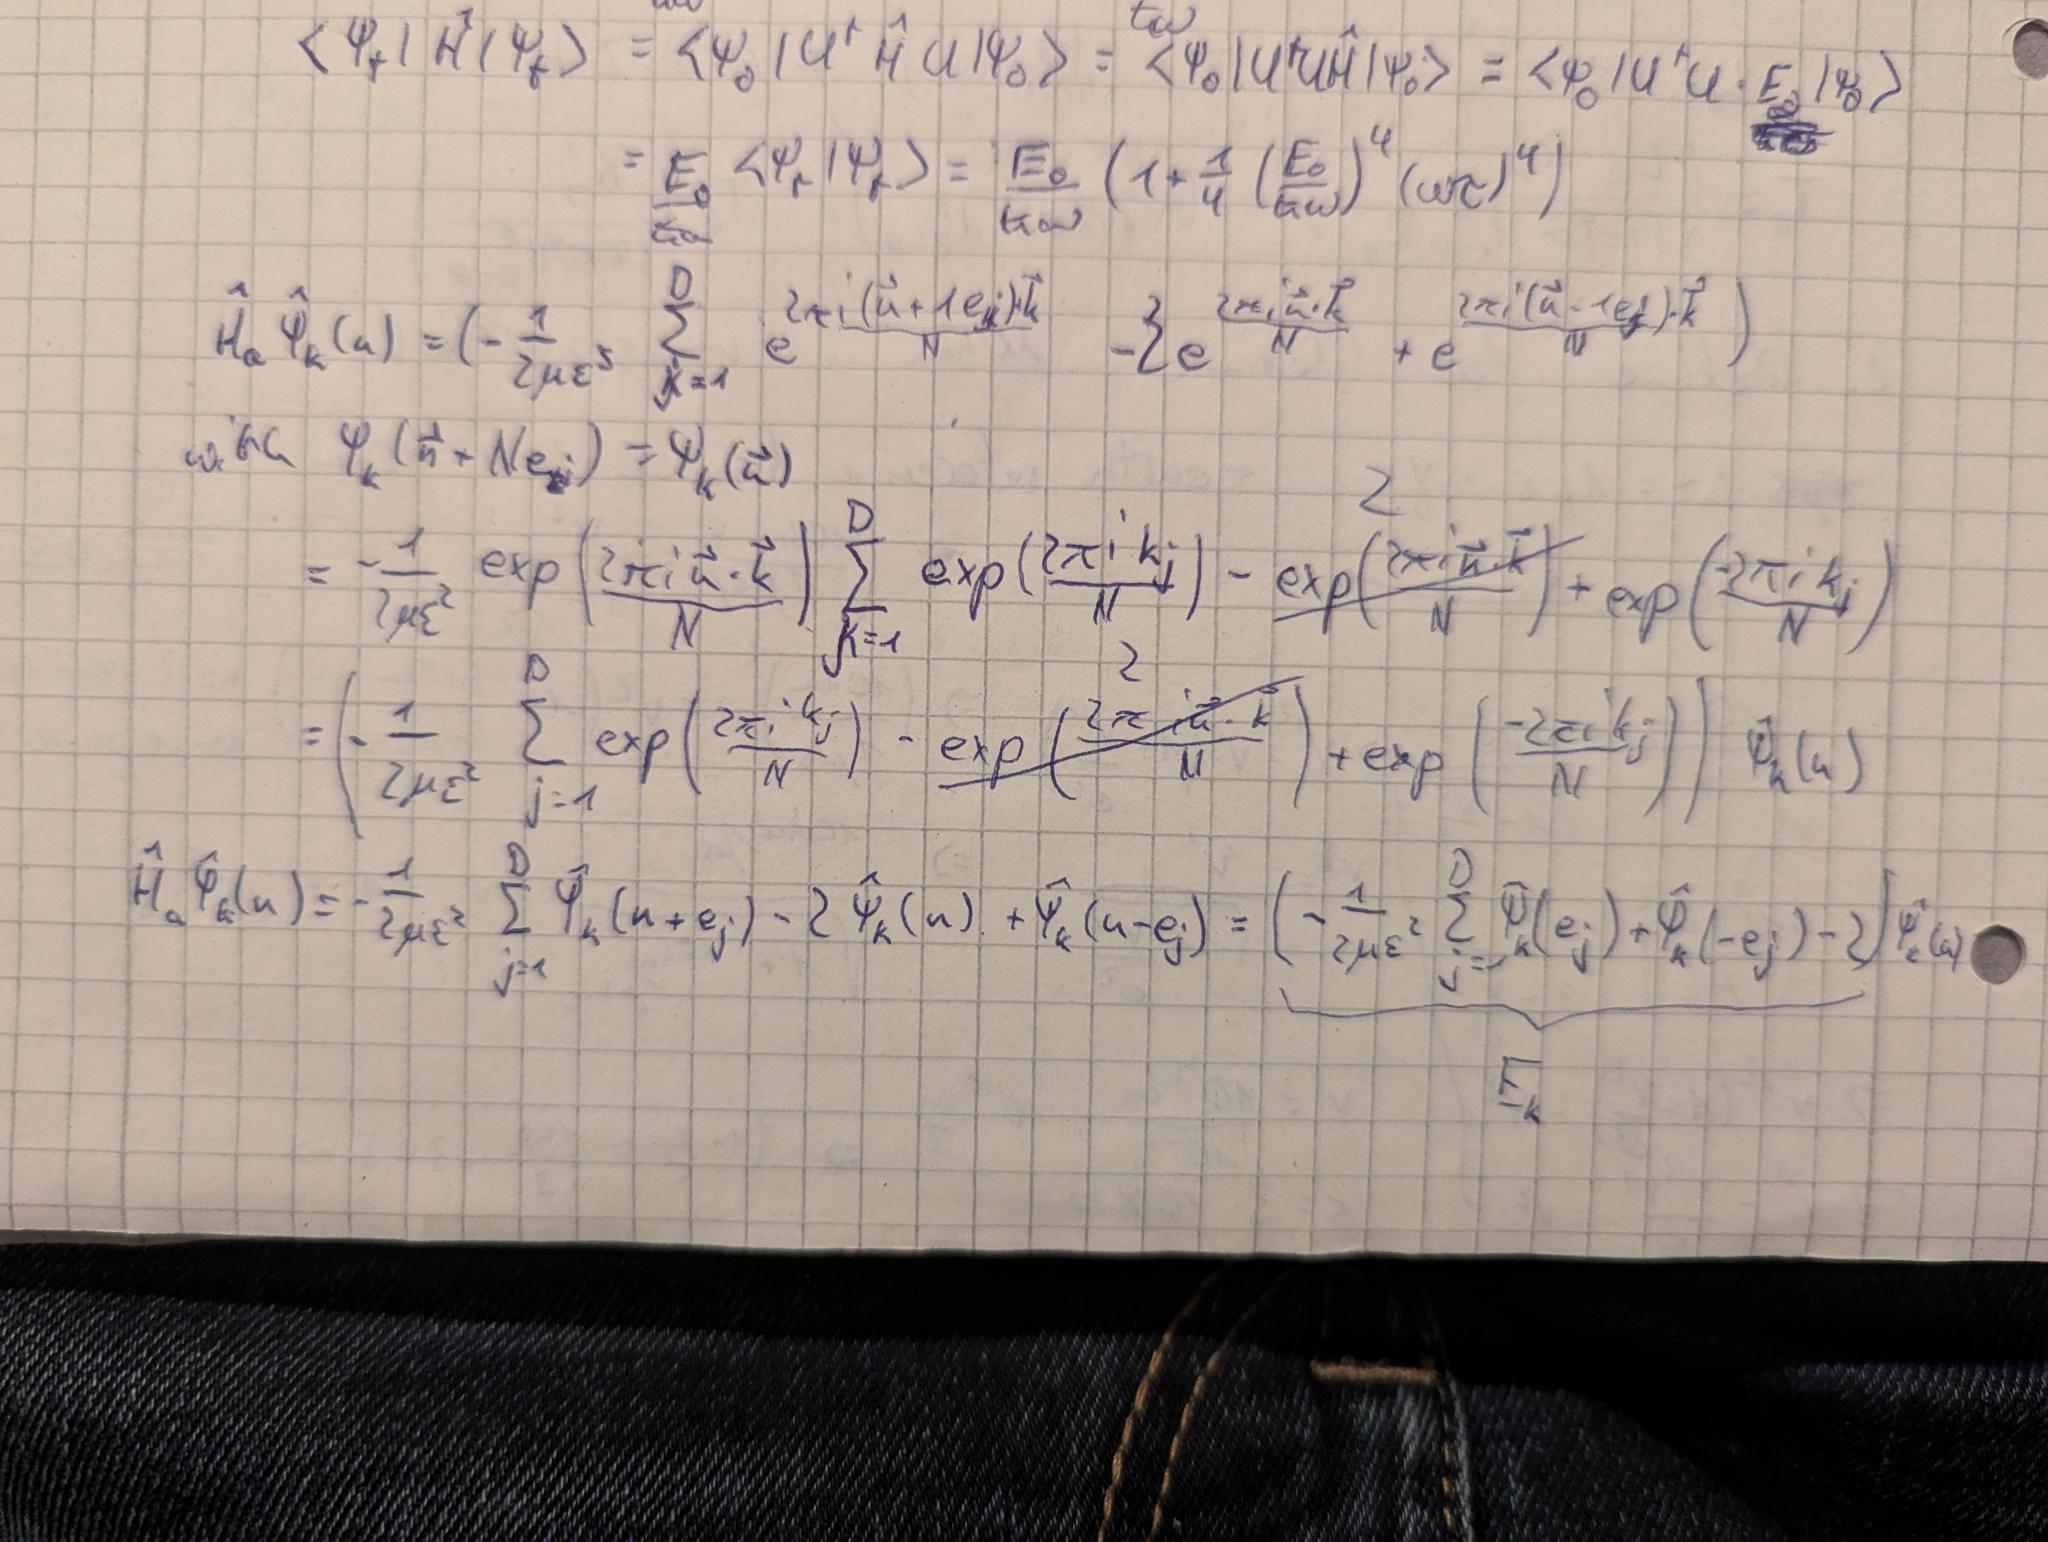 ⟨Ψ_t| Ĥ |Ψ_t⟩ = ⟨Ψ_0| U† Ĥ U |Ψ_0⟩ = ⟨Ψ_0| U†U Ĥ |Ψ_0⟩ = ⟨Ψ_0| U†U · E_0 |Ψ_0⟩
= E_0/ħω ⟨Ψ_t|Ψ_t⟩ = E_0/ħω (1 + 1/4 (E_0/ħω)^4 (ωτ)^4)
Ĥ_a Ψ̂_k(n) = (- 1/2με² ∑_{j=1}^{D} e^{2πi(n⃗+1e_j)·k⃗/N} - 2 e^{2πi n⃗·k⃗/N} + e^{2πi(n⃗-1e_j)·k⃗/N})
with Ψ_k(n⃗ + Ne_j) = Ψ_k(n⃗)
= - 1/2με² exp(2πi n⃗·k⃗/N) ∑_{j=1}^{D} exp(2πi k_j/N) - 2 + exp(-2πi k_j/N)
= (- 1/2με² ∑_{j=1}^{D} exp(2πi k_j/N) - 2 + exp(-2πi k_j/N)) Ψ̂_k(n)
Ĥ_a Ψ̂_k(n) = - 1/2με² ∑_{j=1}^{D} Ψ̂_k(n+e_j) - 2 Ψ̂_k(n) + Ψ̂_k(n-e_j) = (- 1/2με² ∑_{j=1}^{D} Ψ̂_k(e_j) + Ψ̂_k(-e_j) - 2) Ψ̂_k(n)
E_k